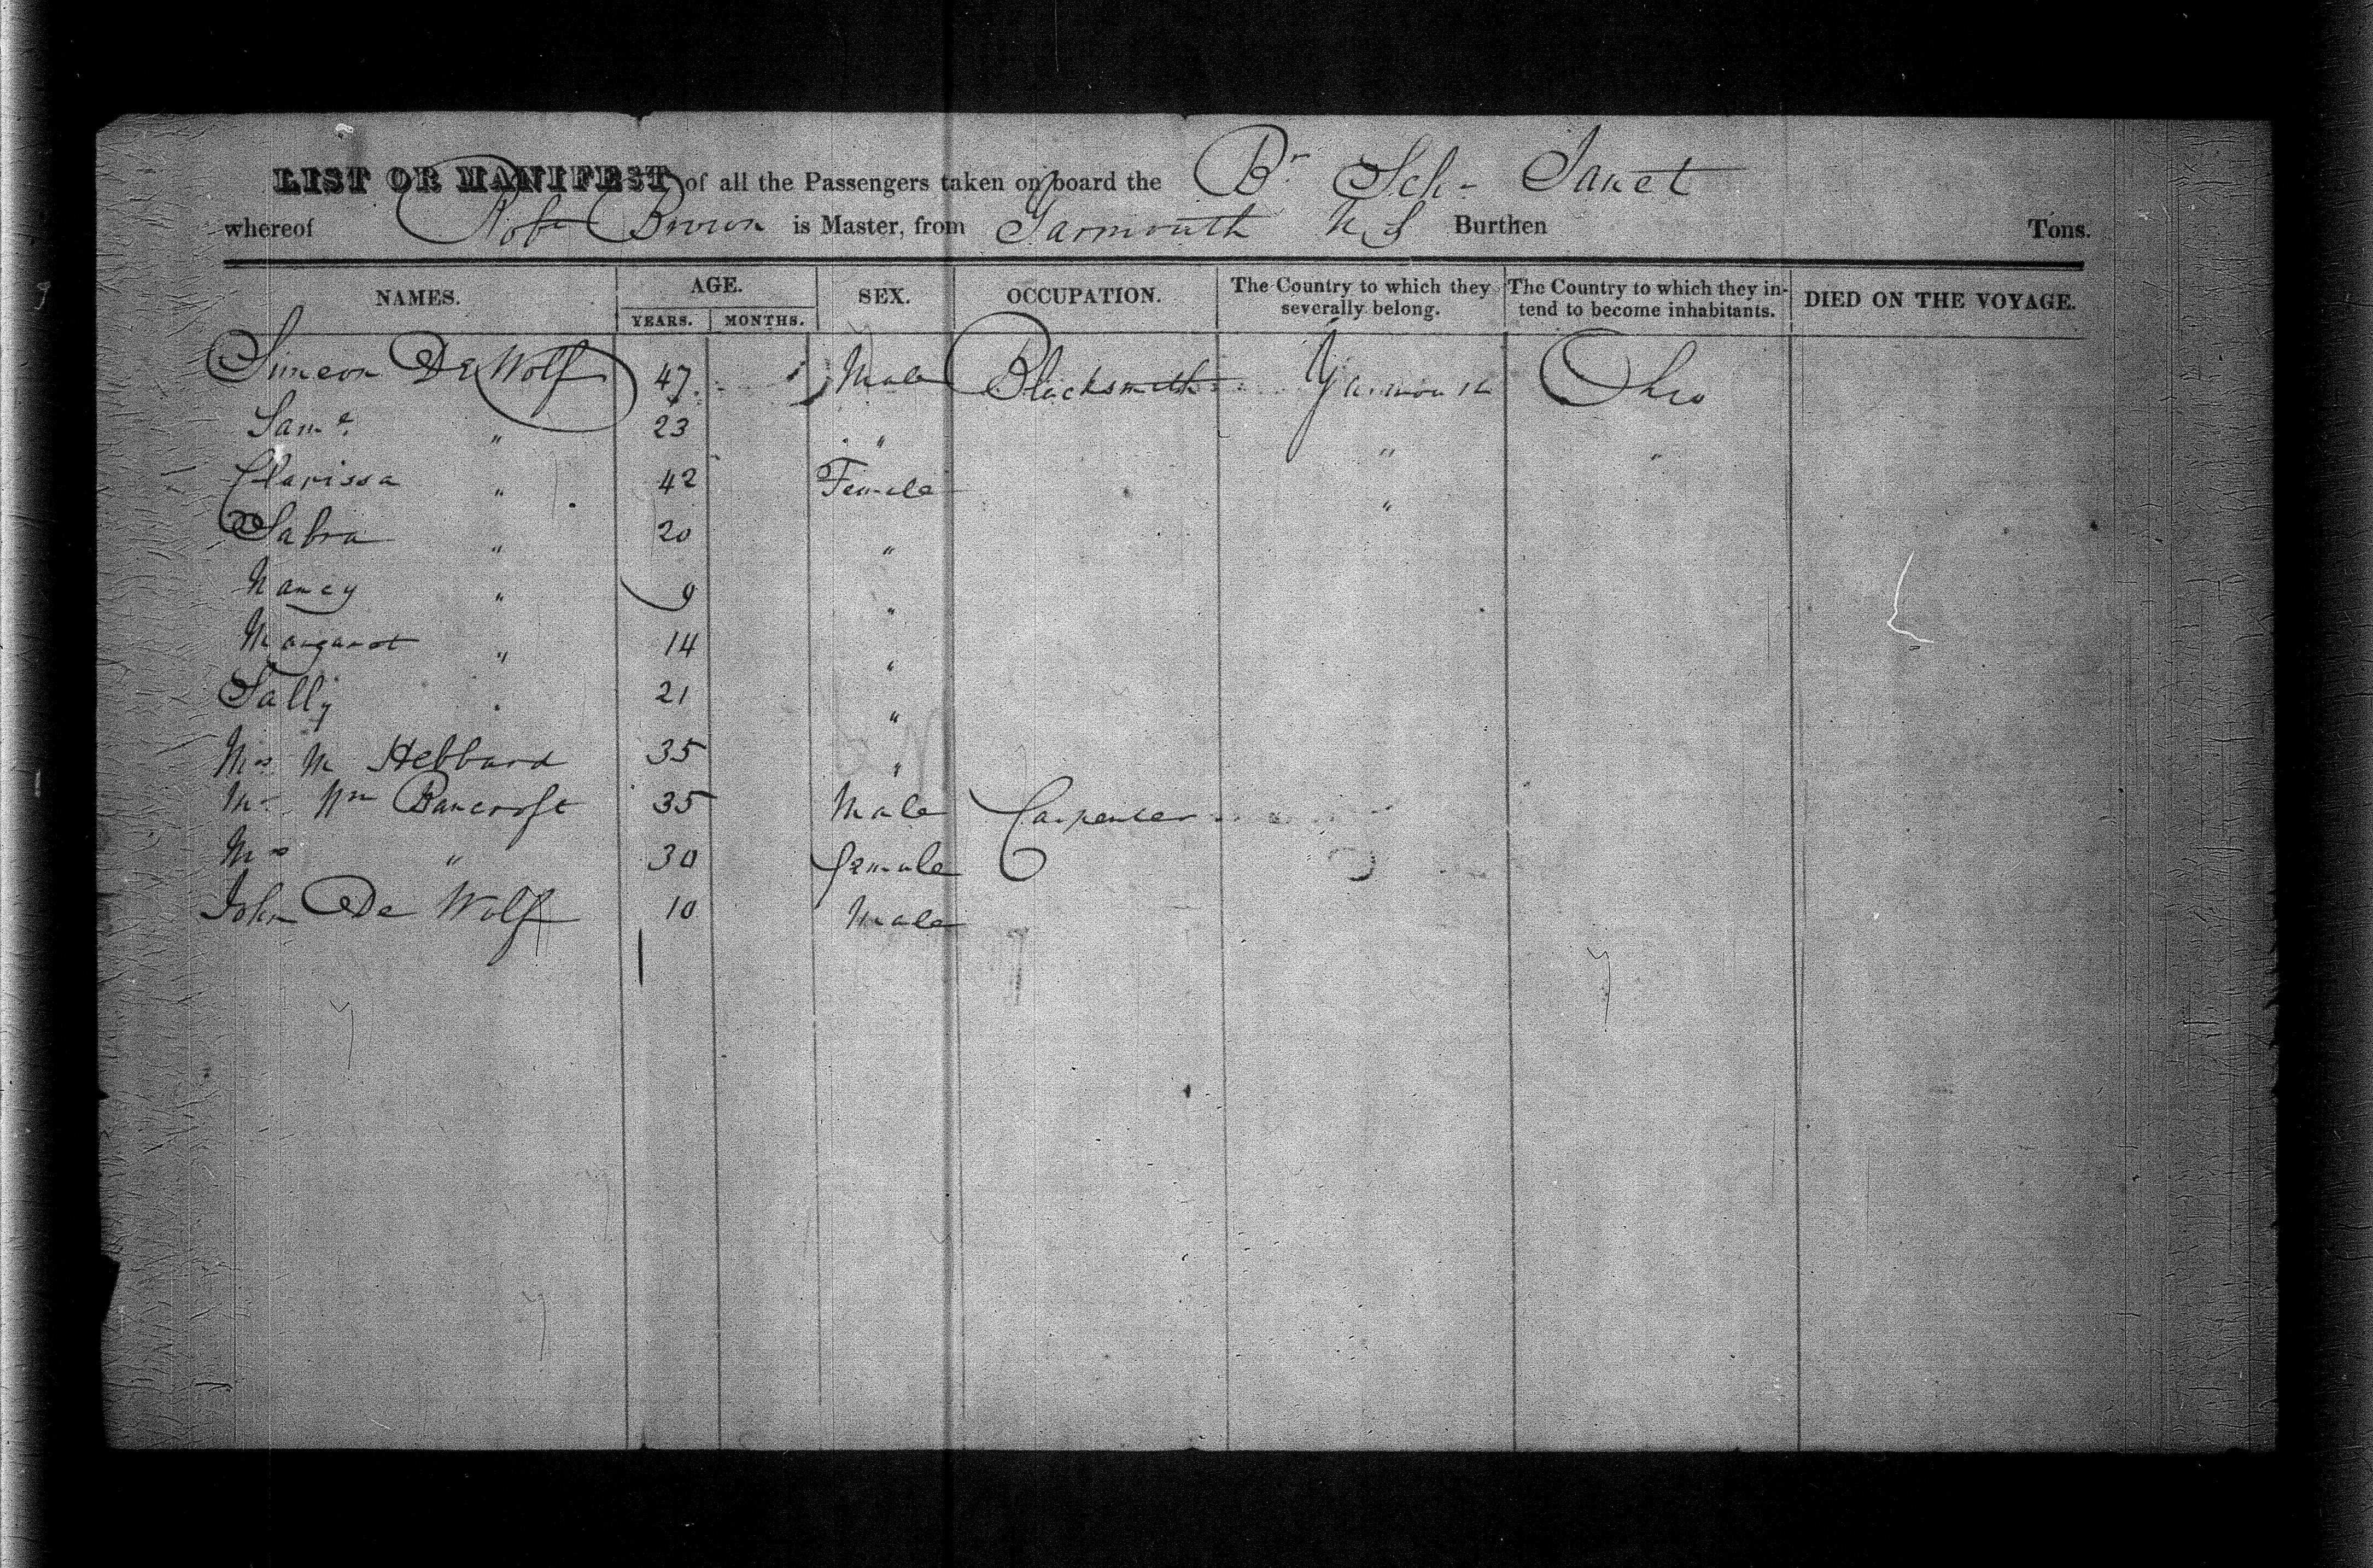 LIST OR MANIFEST of all the Passengers taken on board the Br Sch- Janet
whereof Robt Brown is Master, from Yarmouth N S Burthen Tons.
NAMES. AGE. SEX. OCCUPATION. The Country to which they severally belong. The Country to which they intend to become inhabitants. DIED ON THE VOYAGE.
YEARS. MONTHS.
Simeon De Wolf 47 Male Blacksmith Yarmouth Ohio
Saml " 23 " " "
Clarissa " 42 Female "
Sabra " 20 "
Nancy " 9 "
Margaret " 14 "
Sally 21 "
Mrs M Hebbard 35 "
Mr Wm Bancroft 35 Male Carpenter
Mrs " 30 female
John De Wolf 10 Male